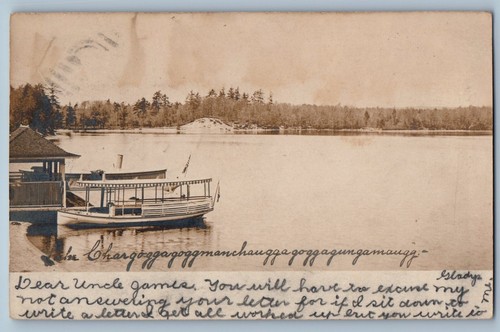 Lake Chargoggagoggmanchauggagoggagungamaugg-
Gladys
Dear Uncle James. You will have to excuse my
not answering your letter for if I'd sit down to
write a letter I get all worked up but you write to
me.